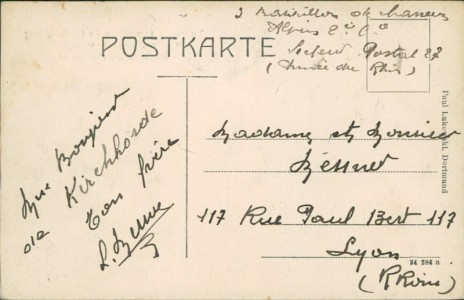 3 Bataillon de Chasseurs
Alpins 2e Cie
POSTKARTE
Secteur Postal 87
(Armée du Rhin)
Un Bonjour
de Kirchhörde
ton frère
L.
Madame et Monsieur
117 Rue Paul Bert 117
Lyon
(Rhône)
Paul Lukowski, Dortmund
24 286